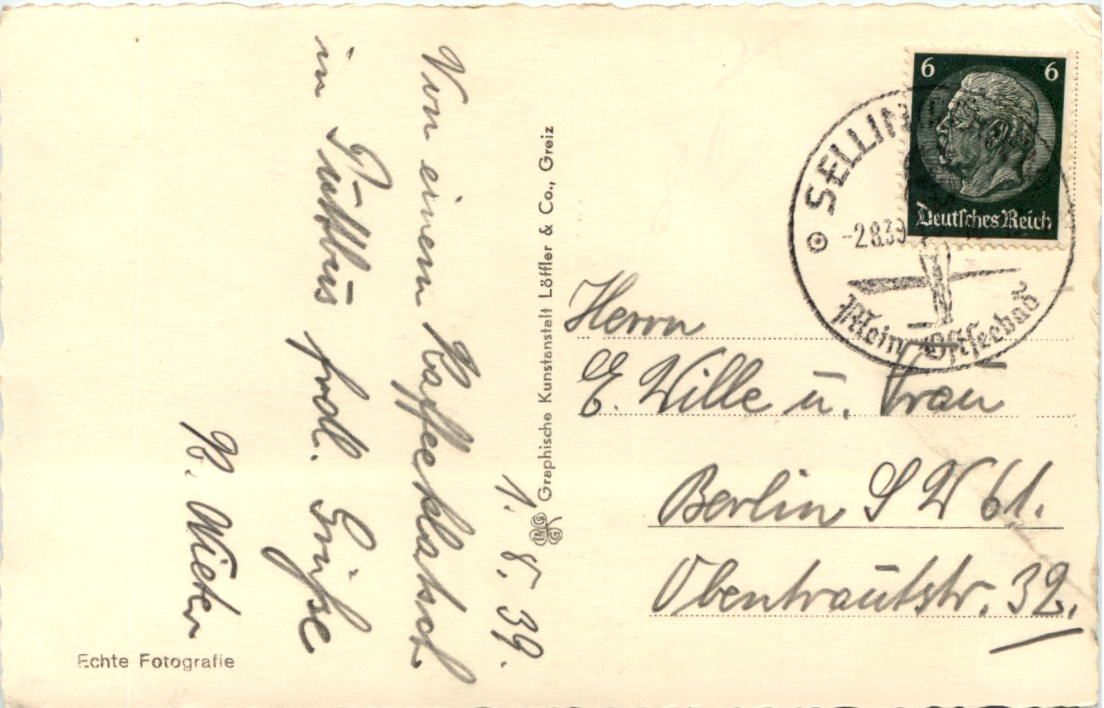 1. 8. 39.
Von einem Kaffeeklatsch
in Puttbus frdl. Grüße
Echte Fotografie
Graphische Kunstanstalt Löffler & Co., Greiz
6 6
Deutsches Reich
SELLIN
-2.8.39
Mein Ostseebad
Herrn
E. Wille u. Frau
Berlin S W 61.
Obentrautstr. 32.